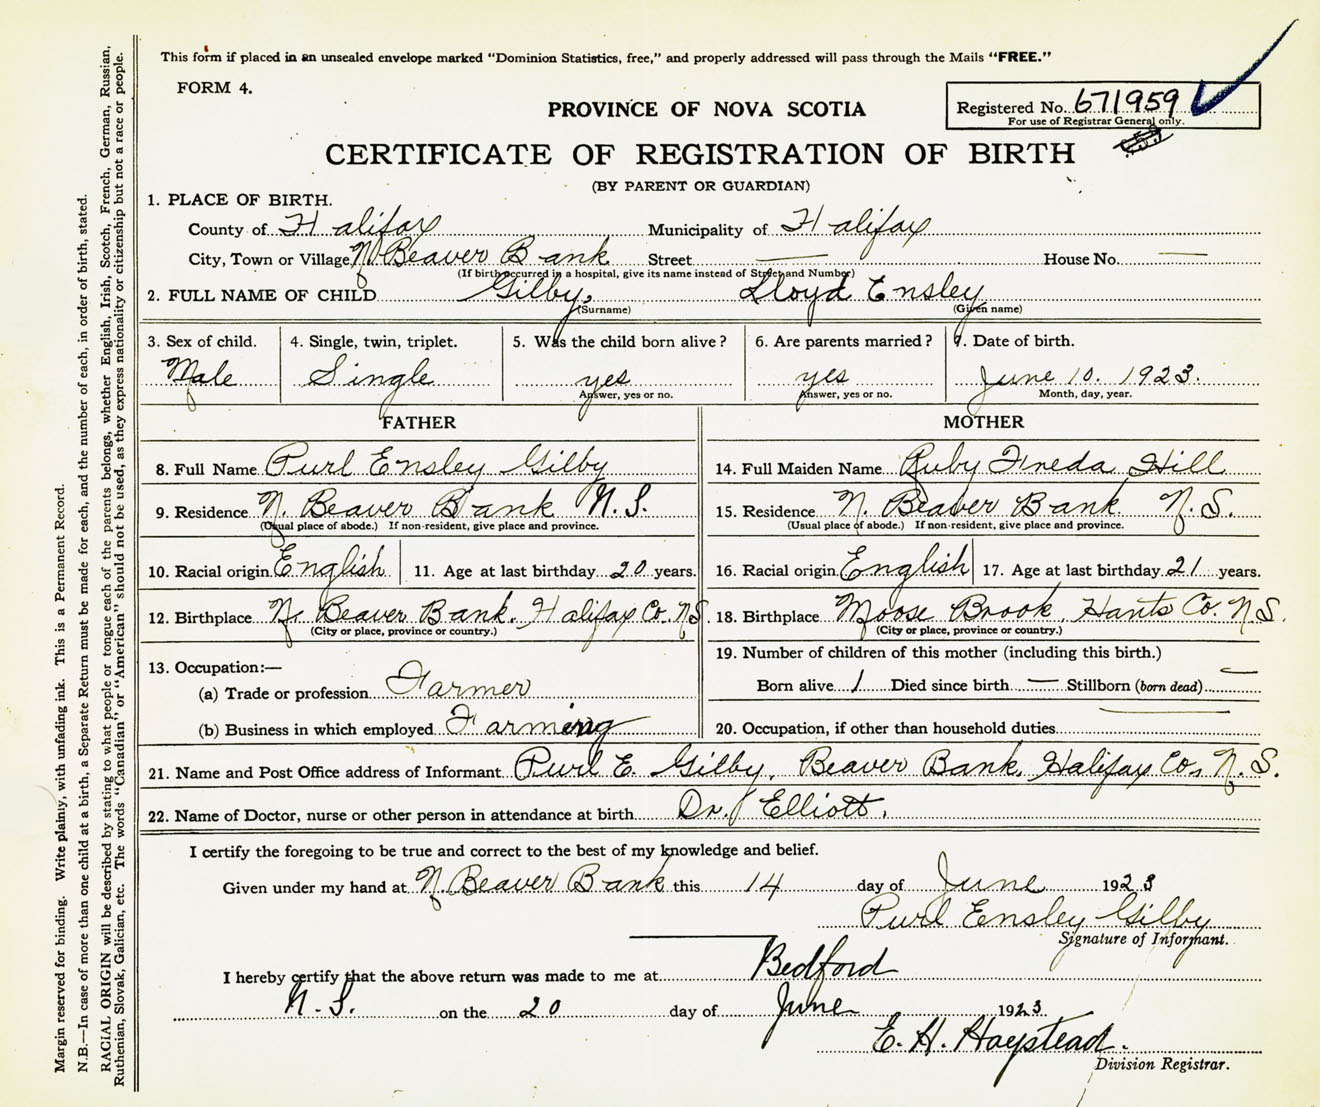 This form if placed in an unsealed envelope marked "Dominion Statistics, free," and properly addressed will pass through the Mails "FREE."
FORM 4.
PROVINCE OF NOVA SCOTIA
Registered No. 671959
For use of Registrar General only.
CERTIFICATE OF REGISTRATION OF BIRTH
(BY PARENT OR GUARDIAN)
1. PLACE OF BIRTH.
County of Halifax Municipality of Halifax
City, Town or Village N. Beaver Bank Street — House No. —
(If birth occurred in a hospital, give its name instead of Street and Number)
2. FULL NAME OF CHILD Gilby, Lloyd Ensley
(Surname) (Given name)
3. Sex of child. 4. Single, twin, triplet. 5. Was the child born alive? 6. Are parents married? 7. Date of birth.
Male Single yes yes June 10. 1923.
Answer, yes or no. Answer, yes or no. Month, day, year.
FATHER MOTHER
8. Full Name Purl Ensley Gilby 14. Full Maiden Name Ruby Freda Hill
9. Residence N. Beaver Bank N.S. 15. Residence N. Beaver Bank N.S.
(Usual place of abode.) If non-resident, give place and province. (Usual place of abode.) If non-resident, give place and province.
10. Racial origin English 11. Age at last birthday 20 years. 16. Racial origin English 17. Age at last birthday 21 years.
12. Birthplace N. Beaver Bank. Halifax Co. NS 18. Birthplace Moose Brook, Hants Co. N.S.
(City or place, province or country.) (City or place, province or country.)
13. Occupation:— 19. Number of children of this mother (including this birth.)
(a) Trade or profession Farmer Born alive 1 Died since birth — Stillborn (born dead) —
(b) Business in which employed Farming 20. Occupation, if other than household duties —
21. Name and Post Office address of Informant Purl E. Gilby, Beaver Bank, Halifax Co, N.S.
22. Name of Doctor, nurse or other person in attendance at birth Dr. Elliott.
I certify the foregoing to be true and correct to the best of my knowledge and belief.
Given under my hand at N. Beaver Bank this 14 day of June 1923
Purl Ensley Gilby
Signature of Informant.
I hereby certify that the above return was made to me at Bedford
N.S. on the 20 day of June 1923.
E. H. Haystead.
Division Registrar.
Margin reserved for binding. Write plainly, with unfading ink. This is a Permanent Record.
N.B.—In case of more than one child at a birth, a Separate Return must be made for each, and the number of each, in order of birth, stated.
RACIAL ORIGIN will be described by stating to what people or tongue each of the parents belongs, whether English, Irish, Scotch, French, German, Russian,
Ruthenian, Slovak, Galician, etc. The words "Canadian" or "American" should not be used, as they express nationality or citizenship but not a race or people.